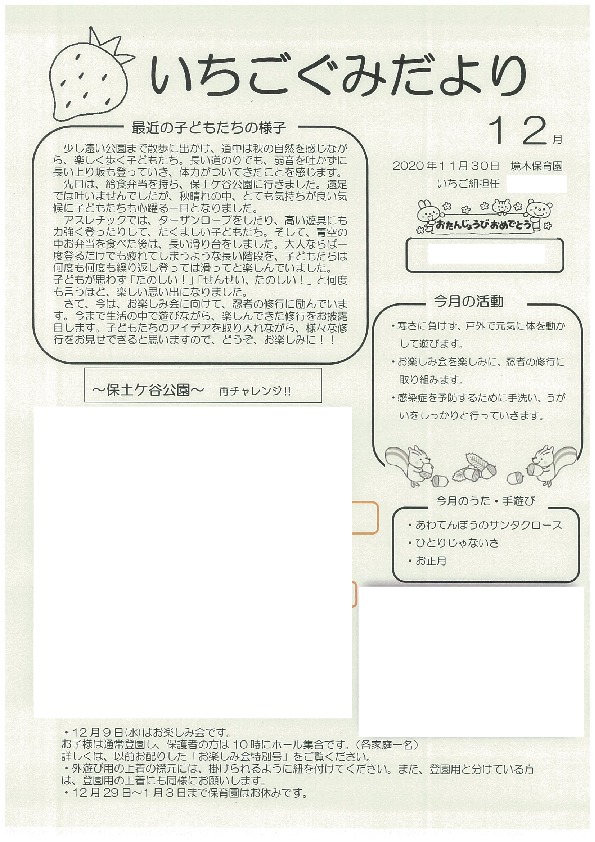 いちごぐみだより
12月
2020年11月30日 境木保育園
いちご組担任
おたんじょうびおめでとう
最近の子どもたちの様子
少し遠い公園まで散歩に出かけ、道中は秋の自然を感じなが
ら、楽しく歩く子どもたち。長い道のりでも、弱音を吐かずに
長い上り坂も登っていき、体力がついてきたことを感じます。
先日は、給食弁当を持ち、保土ケ谷公園に行きました。遠足
では叶いませんでしたが、秋晴れの中、とても気持ちが良い気
候に子どもたちも心躍る一日となりました。
アスレチックでは、ターザンロープをしたり、高い遊具にも
力強く登ったりして、たくましい子どもたち。そして、青空の
中お弁当を食べた後は、長い滑り台をしました。大人ならば一
度登るだけでも疲れてしまうような長い階段を、子どもたちは
何度も何度も繰り返し登っては滑ってと楽しんでいました。
子どもが思わず「たのしい！」「せんせい、たのしい！」と何度
も言うほど、楽しい思い出になりました。
さて、今は、お楽しみ会に向けて、忍者の修行に励んでいま
す。今まで生活の中で遊びながら、楽しんできた修行をお披露
目します。子どもたちのアイデアを取り入れながら、様々な修
行をお見せできると思いますので、どうぞ、お楽しみに！！
今月の活動
・寒さに負けず、戸外で元気に体を動か
して遊びます。
・お楽しみ会を楽しみに、忍者の修行に
取り組みます。
・感染症を予防するために手洗い、うが
いをしっかりと行っていきます。
～保土ケ谷公園～
チャレンジ!!
今月のうた・手遊び
・あわてんぼうのサンタクロース
・ひとりじゃないさ
・お正月
・12月9日(水)はお楽しみ会です。
お子様は通常登園し、保護者の方は10時にホール集合です。（各家庭一名）
詳しくは、以前お配りした「お楽しみ会特別号」をご覧ください。
・外遊び用の上着の襟元には、掛けられるように紐を付けてください。また、登園用と分けている方
は、登園用の上着にも同様にお願いします。
・12月29日～1月3日まで保育園はお休みです。